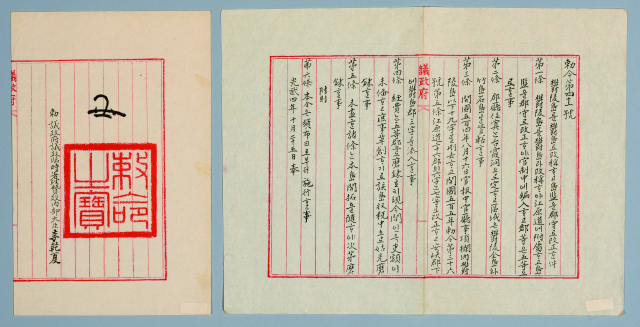 勅令第四十一號
鬱陵島를鬱島로改稱ᄒᆞ고島監을郡守로改正ᄒᆞᆫ件
第一條 鬱陵島를鬱島라改稱ᄒᆞ야江原道에附屬ᄒᆞ고島
監을郡守로改正ᄒᆞ야官制中에編入ᄒᆞ고郡等은五等으
로ᄒᆞᆯ事
第二條 郡廳位寘ᄂᆞᆫ台霞洞으로定ᄒᆞ고區域은鬱陵全島와
竹島石島를管轄ᄒᆞᆯ事
第三條 開國五百四年八月十六日官報中官廳事項欄內鬱
陵島以下十九字를刪去ᄒᆞ고開國五百五年勅令第三十六
號第五條江原道二十六郡의六字ᄂᆞᆫ七字로改正ᄒᆞ고安峽郡下
에鬱島郡三字를添入ᄒᆞᆯ事
議政府
第四條 經費ᄂᆞᆫ五等郡으로磨鍊호ᄃᆡ現今間인즉吏額이
未備ᄒᆞ고庶事草創ᄒᆞ기로該島收稅中으로姑先磨
鍊ᄒᆞᆯ事
第五條 未盡ᄒᆞᆫ諸條ᄂᆞᆫ本島開拓을隨ᄒᆞ야次第磨
鍊ᄒᆞᆯ事
附則
第六條 本令은頒布日로부터施行ᄒᆞᆯ事
光武四年十月二十五日奉
勅 議政府議政臨時署理贊政內部大臣李乾夏
勅命之寶
議政府